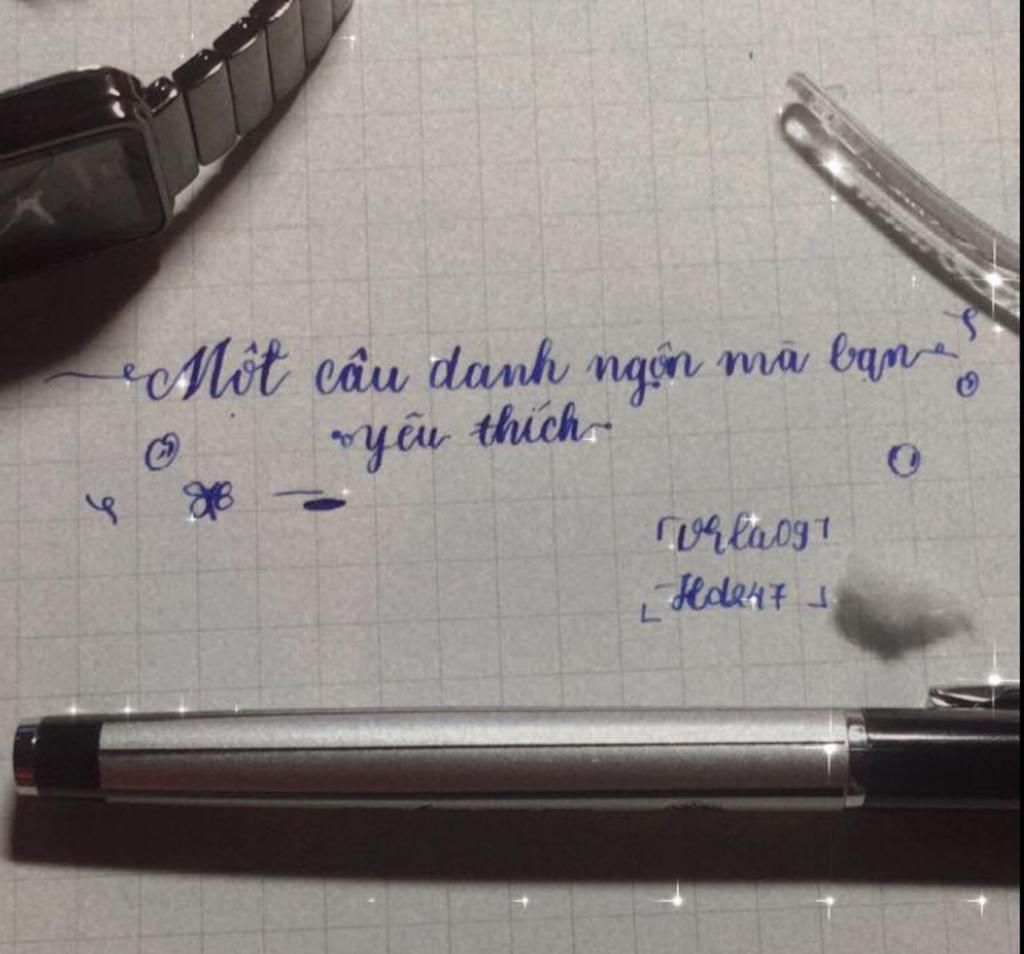 Một câu danh ngôn mà bạn
yêu thích
「Vkla09」
[Hde47]